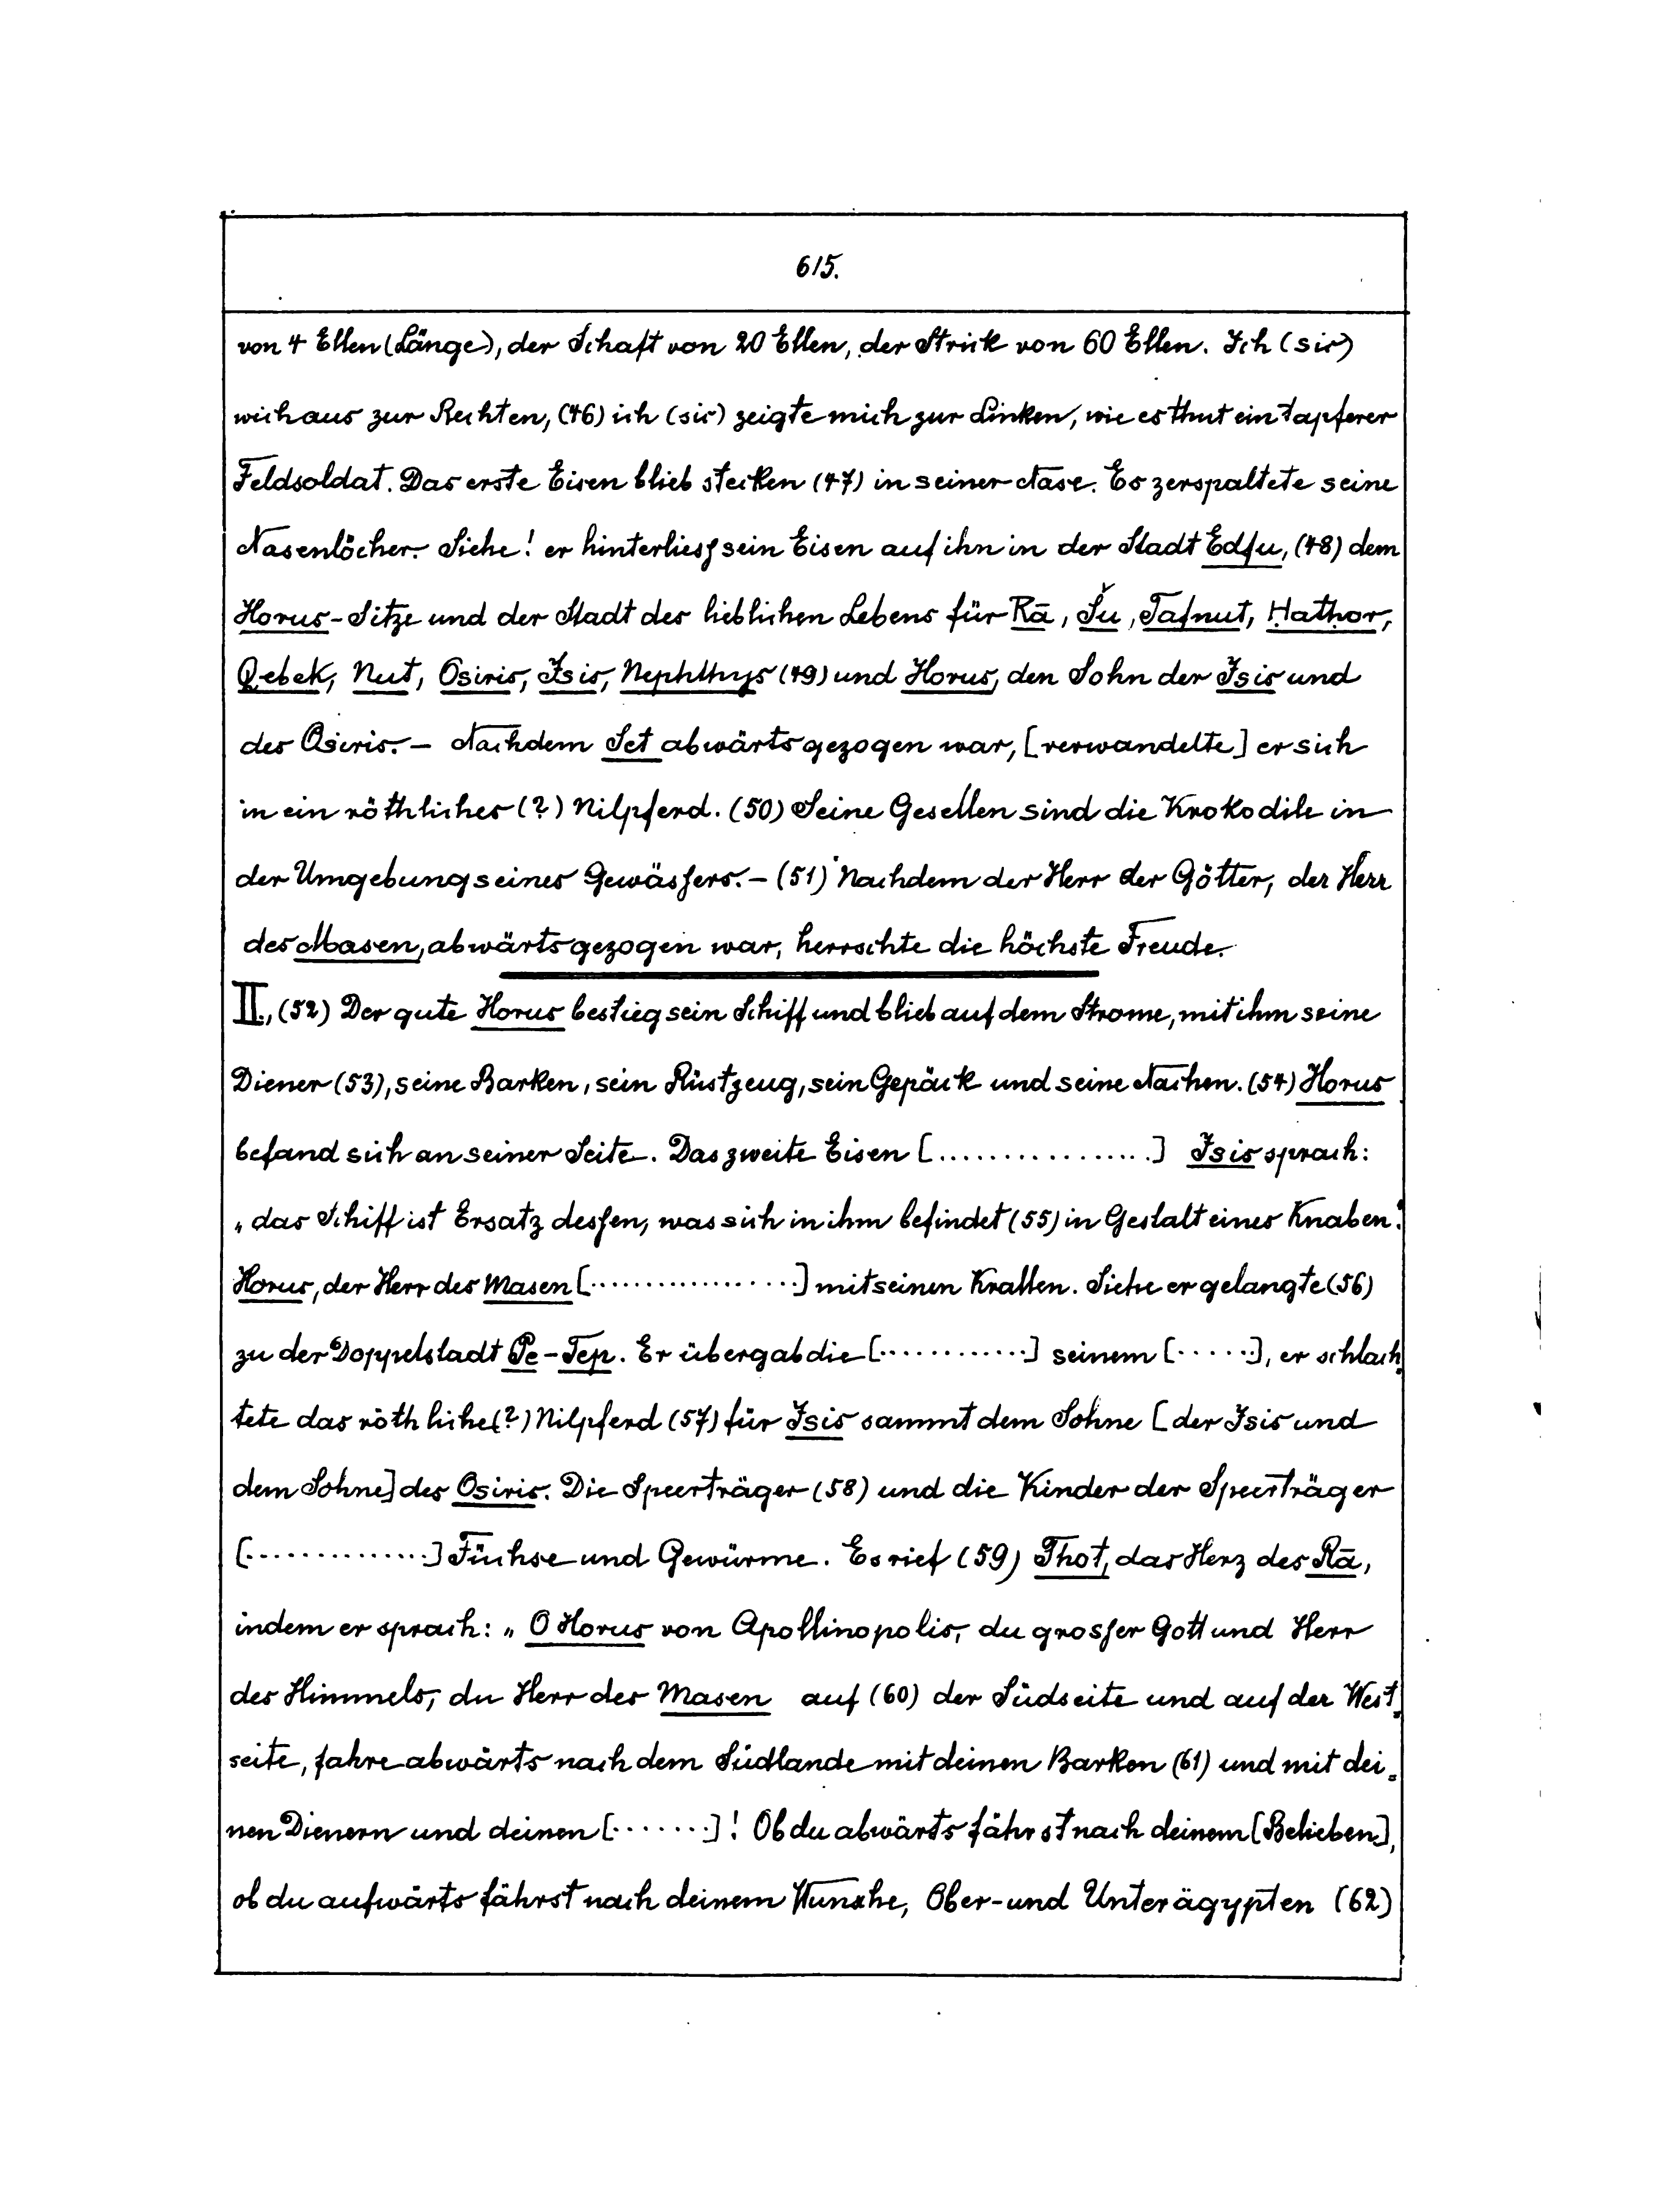 615.
von 4 Ellen (Länge), der Schaft von 20 Ellen, der Strick von 60 Ellen. Ich (sic)
wich aus zur Rechten, (46) ich (sic) zeigte mich zur Linken, wie es thut ein tapferer
Feldsoldat. Das erste Eisen blieb stecken (47) in seiner Nase. Es zerspaltete seine
Nasenlöcher. Siehe! er hinterliess sein Eisen auf ihn in der Stadt Edfu, (48) dem
Horus-Sitze und der Stadt des lieblichen Lebens für Rā, Šu, Tafnut, Hathor,
Qebek, Nut, Osiris, Isis, Nephthys (49) und Horus, den Sohn der Isis und
des Osiris. — Nachdem Set abwärts gezogen war, [verwandelte] er sich
in ein röthliches (?) Nilpferd. (50) Seine Gesellen sind die Krokodile in
der Umgebung seines Gewässers. — (51) Nachdem der Herr der Götter, der Herr
des Masen, abwärts gezogen war, herrschte die höchste Freude.
II., (52) Der gute Horus bestieg sein Schiff und blieb auf dem Strome, mit ihm seine
Diener (53), seine Barken, sein Rüstzeug, sein Gepäck und seine Nachen. (54) Horus
befand sich an seiner Seite. Das zweite Eisen [................] Isis sprach:
„das Schiff ist Ersatz dessen, was sich in ihm befindet (55) in Gestalt eines Knaben."
Horus, der Herr des Masen [................] mit seinen Krallen. Siehe er gelangte (56)
zu der Doppelstadt Pe-Tep. Er übergab die [............] seinem [......], er schlach-
tete das röthliche (?) Nilpferd (57) für Isis sammt dem Sohne [der Isis und
dem Sohne] des Osiris. Die Speerträger (58) und die Kinder der Speerträger
[..............] Füchse und Gewürme. Es rief (59) Thot, das Herz des Rā,
indem er sprach: „O Horus von Apollinopolis, du grosser Gott und Herr
des Himmels, du Herr des Masen auf (60) der Südseite und auf der West-
seite, fahre abwärts nach dem Südlande mit deinen Barken (61) und mit dei=
nen Dienern und deinen [.......]! Ob du abwärts fährst nach deinem [Belieben],
ob du aufwärts fährst nach deinem Wunsche, Ober- und Unterägypten (62)